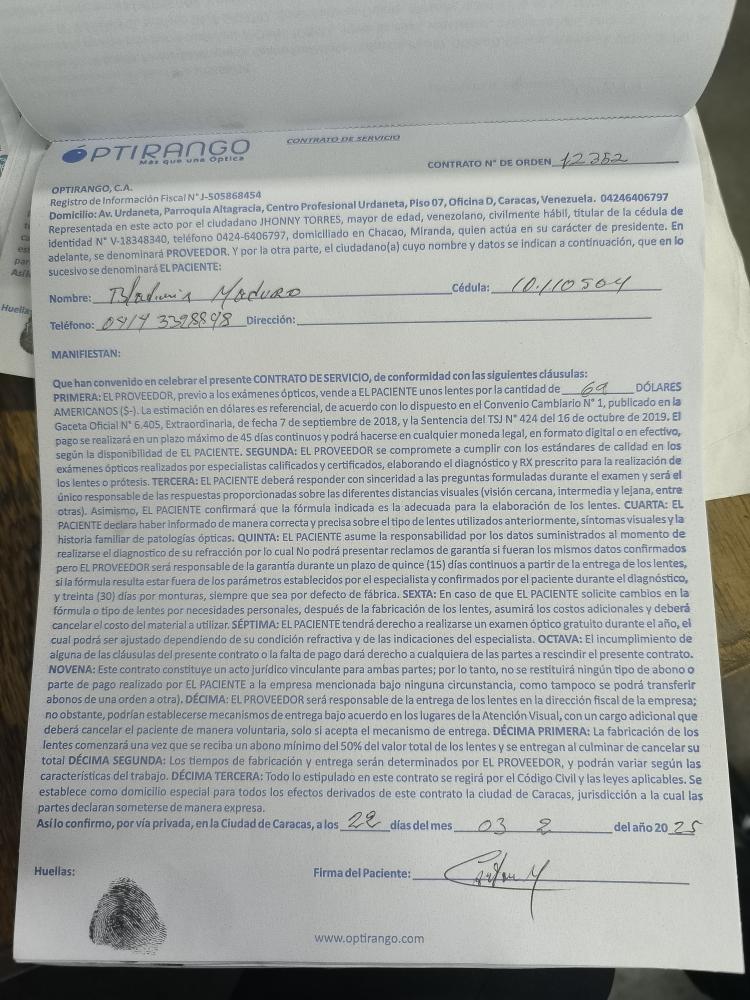 OPTIRANGO
Más que una Óptica
CONTRATO DE SERVICIO
CONTRATO N° DE ORDEN 12352
OPTIRANGO, C.A.
Registro de Información Fiscal N° J-505868454
Domicilio: Av. Urdaneta, Parroquia Altagracia, Centro Profesional Urdaneta, Piso 07, Oficina D, Caracas, Venezuela. 04246406797
Representada en este acto por el ciudadano JHONNY TORRES, mayor de edad, venezolano, civilmente hábil, titular de la cédula de
identidad N° V-18348340, teléfono 0424-6406797, domiciliado en Chacao, Miranda, quien actúa en su carácter de presidente. En
adelante, se denominará PROVEEDOR. Y por la otra parte, el ciudadano(a) cuyo nombre y datos se indican a continuación, que en lo
sucesivo se denominará EL PACIENTE:
Nombre: Maduro Cédula: 10.110504
Teléfono: 0414 3398898 Dirección:
MANIFIESTAN:
Que han convenido en celebrar el presente CONTRATO DE SERVICIO, de conformidad con las siguientes cláusulas:
PRIMERA: EL PROVEEDOR, previo a los exámenes ópticos, vende a EL PACIENTE unos lentes por la cantidad de 69 DÓLARES
AMERICANOS ($-). La estimación en dólares es referencial, de acuerdo con lo dispuesto en el Convenio Cambiario N° 1, publicado en la
Gaceta Oficial N° 6.405, Extraordinaria, de fecha 7 de septiembre de 2018, y la Sentencia del TSJ N° 424 del 16 de octubre de 2019. El
pago se realizará en un plazo máximo de 45 días continuos y podrá hacerse en cualquier moneda legal, en formato digital o en efectivo,
según la disponibilidad de EL PACIENTE. SEGUNDA: EL PROVEEDOR se compromete a cumplir con los estándares de calidad en los
exámenes ópticos realizados por especialistas calificados y certificados, elaborando el diagnóstico y RX prescrito para la realización de
los lentes o prótesis. TERCERA: EL PACIENTE deberá responder con sinceridad a las preguntas formuladas durante el examen y será el
único responsable de las respuestas proporcionadas sobre las diferentes distancias visuales (visión cercana, intermedia y lejana, entre
otras). Asimismo, EL PACIENTE confirmará que la fórmula indicada es la adecuada para la elaboración de los lentes. CUARTA: EL
PACIENTE declara haber informado de manera correcta y precisa sobre el tipo de lentes utilizados anteriormente, síntomas visuales y la
historia familiar de patologías ópticas. QUINTA: EL PACIENTE asume la responsabilidad por los datos suministrados al momento de
realizarse el diagnostico de su refracción por lo cual No podrá presentar reclamos de garantía si fueran los mismos datos confirmados
pero EL PROVEEDOR será responsable de la garantía durante un plazo de quince (15) días continuos a partir de la entrega de los lentes,
si la fórmula resulta estar fuera de los parámetros establecidos por el especialista y confirmados por el paciente durante el diagnóstico,
y treinta (30) días por monturas, siempre que sea por defecto de fábrica. SEXTA: En caso de que EL PACIENTE solicite cambios en la
fórmula o tipo de lentes por necesidades personales, después de la fabricación de los lentes, asumirá los costos adicionales y deberá
cancelar el costo del material a utilizar. SÉPTIMA: EL PACIENTE tendrá derecho a realizarse un examen óptico gratuito durante el año, el
cual podrá ser ajustado dependiendo de su condición refractiva y de las indicaciones del especialista. OCTAVA: El incumplimiento de
alguna de las cláusulas del presente contrato o la falta de pago dará derecho a cualquiera de las partes a rescindir el presente contrato.
NOVENA: Este contrato constituye un acto jurídico vinculante para ambas partes; por lo tanto, no se restituirá ningún tipo de abono o
parte de pago realizado por EL PACIENTE a la empresa mencionada bajo ninguna circunstancia, como tampoco se podrá transferir
abonos de una orden a otra). DÉCIMA: EL PROVEEDOR será responsable de la entrega de los lentes en la dirección fiscal de la empresa;
no obstante, podrían establecerse mecanismos de entrega bajo acuerdo en los lugares de la Atención Visual, con un cargo adicional que
deberá cancelar el paciente de manera voluntaria, solo si acepta el mecanismo de entrega. DÉCIMA PRIMERA: La fabricación de los
lentes comenzará una vez que se reciba un abono mínimo del 50% del valor total de los lentes y se entregan al culminar de cancelar su
total DÉCIMA SEGUNDA: Los tiempos de fabricación y entrega serán determinados por EL PROVEEDOR, y podrán variar según las
características del trabajo. DÉCIMA TERCERA: Todo lo estipulado en este contrato se regirá por el Código Civil y las leyes aplicables. Se
establece como domicilio especial para todos los efectos derivados de este contrato la ciudad de Caracas, jurisdicción a la cual las
partes declaran someterse de manera expresa.
Así lo confirmo, por vía privada, en la Ciudad de Caracas, a los 22 días del mes 03 2 del año 2025
Huellas:
Firma del Paciente:
www.optirango.com
Huella